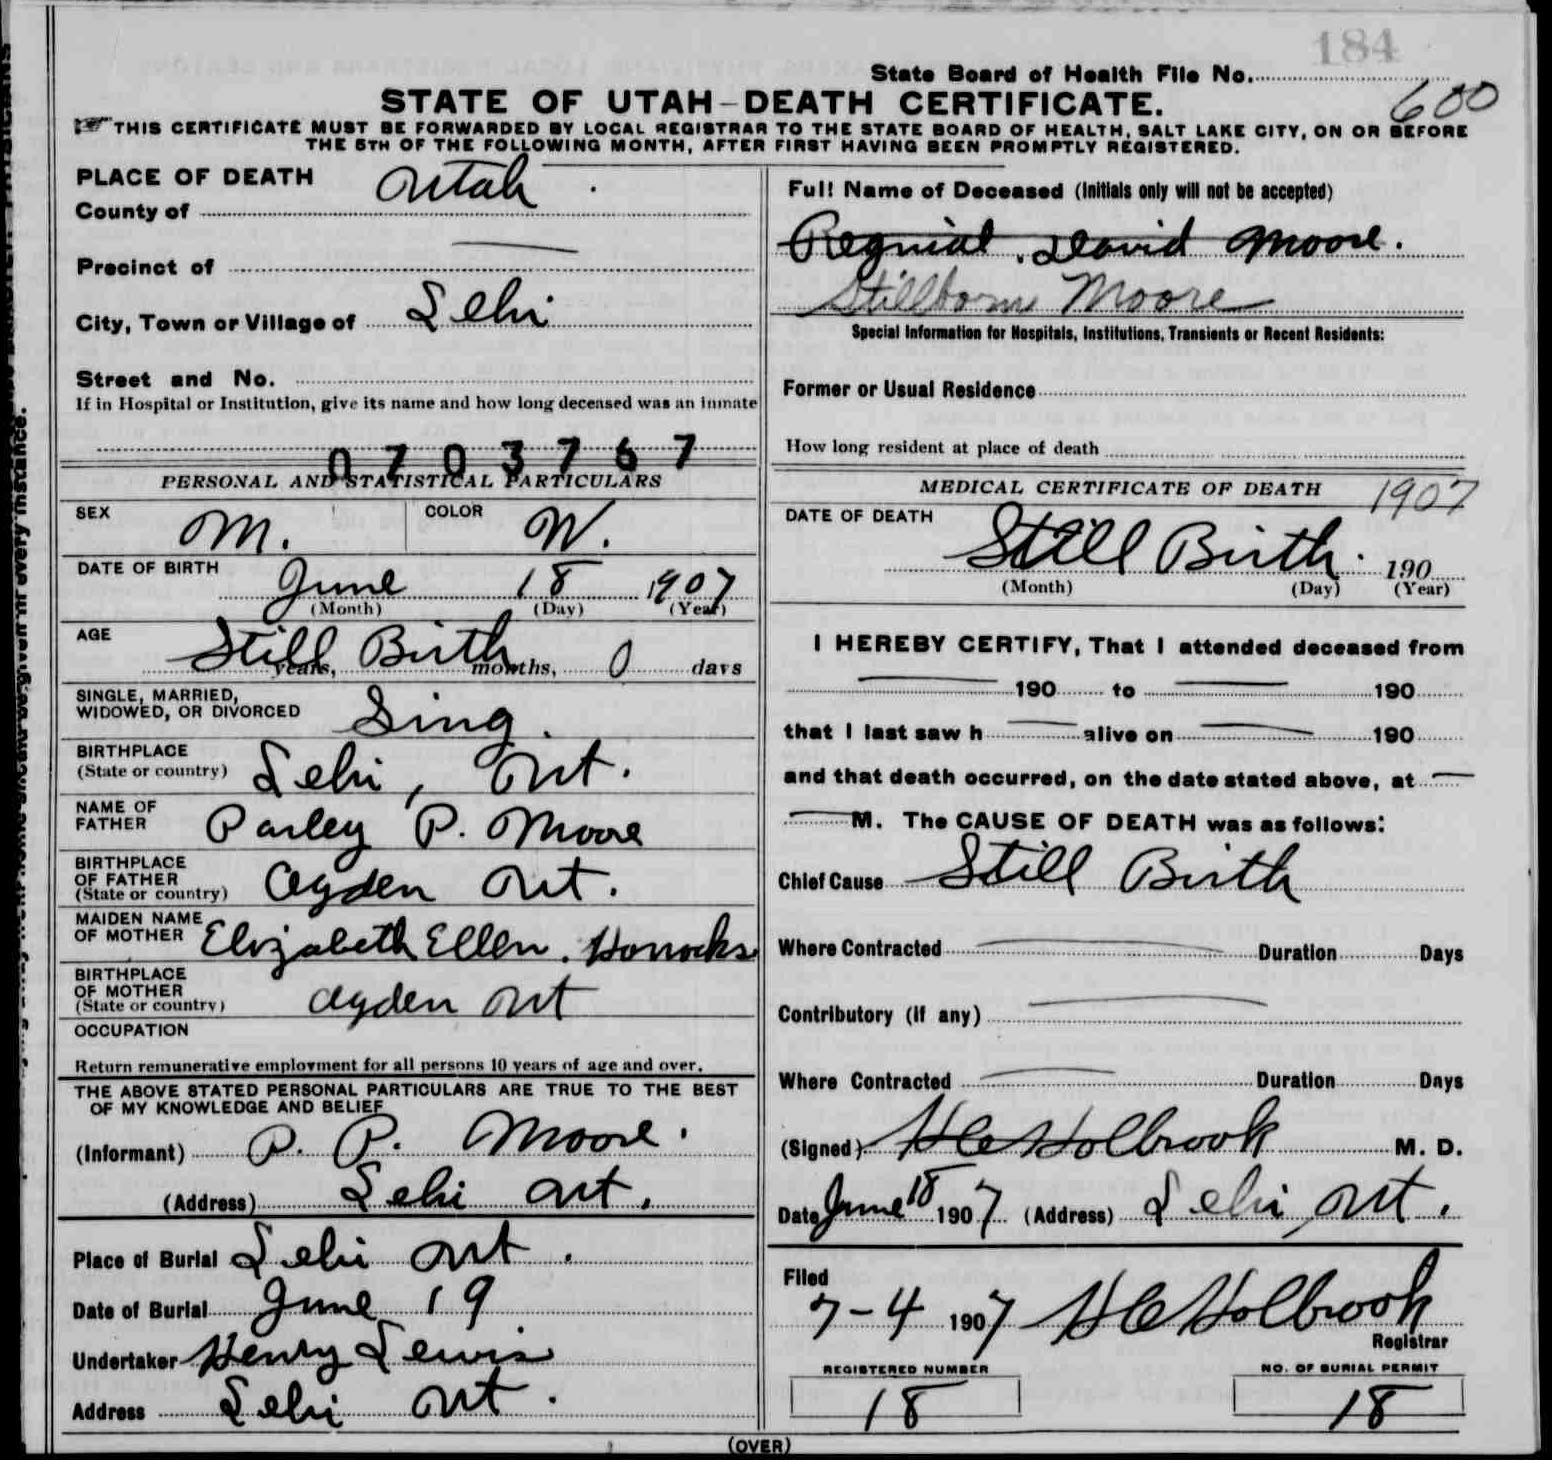 184
State Board of Health File No.
600
STATE OF UTAH-DEATH CERTIFICATE.
THIS CERTIFICATE MUST BE FORWARDED BY LOCAL REGISTRAR TO THE STATE BOARD OF HEALTH, SALT LAKE CITY, ON OR BEFORE
THE 5TH OF THE FOLLOWING MONTH, AFTER FIRST HAVING BEEN PROMPTLY REGISTERED.
PLACE OF DEATH
County of Utah.
Precinct of —
City, Town or Village of Lehi
Street and No.
If in Hospital or Institution, give its name and how long deceased was an inmate
0703767
PERSONAL AND STATISTICAL PARTICULARS
SEX M. COLOR W.
DATE OF BIRTH June 18 1907
(Month) (Day) (Year)
AGE Still Birth years, months, 0 days
SINGLE, MARRIED,
WIDOWED, OR DIVORCED Sing.
BIRTHPLACE
(State or country) Lehi, Ut.
NAME OF
FATHER Parley P. Moore
BIRTHPLACE
OF FATHER
(State or country) Ogden Ut.
MAIDEN NAME
OF MOTHER Elizabeth Ellen. Horrocks
BIRTHPLACE
OF MOTHER
(State or country) Ogden Ut
OCCUPATION
Return remunerative employment for all persons 10 years of age and over.
THE ABOVE STATED PERSONAL PARTICULARS ARE TRUE TO THE BEST
OF MY KNOWLEDGE AND BELIEF
(Informant) P. P. Moore.
(Address) Lehi Ut.
Place of Burial Lehi Ut.
Date of Burial June 19
Undertaker Henry Lewis
Address Lehi Ut.
Full Name of Deceased (Initials only will not be accepted)
Regnial. David Moore.
Stillborn Moore
Special Information for Hospitals, Institutions, Transients or Recent Residents:
Former or Usual Residence
How long resident at place of death
MEDICAL CERTIFICATE OF DEATH 1907
DATE OF DEATH Still Birth. 190
(Month) (Day) (Year)
I HEREBY CERTIFY, That I attended deceased from
— 190 to — 190
that I last saw h — alive on — 190
and that death occurred, on the date stated above, at —
— M. The CAUSE OF DEATH was as follows:
Chief Cause Still Birth
Where Contracted — Duration Days
Contributory (if any) —
Where Contracted — Duration Days
(Signed) H C Holbrook M. D.
Date June 18 1907 (Address) Lehi, Ut.
Filed
7-4 1907 H C Holbrook
Registrar
REGISTERED NUMBER NO. OF BURIAL PERMIT
18 18
(OVER)